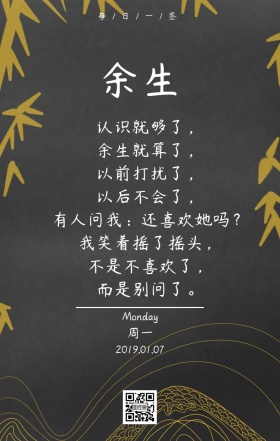 每/日/一/签
余生
认识就够了，
余生就算了，
以前打扰了，
以后不会了，
有人问我：还喜欢她吗？
我笑着摇了摇头，
不是不喜欢了，
而是别问了。
Monday
周一
2019.01.07